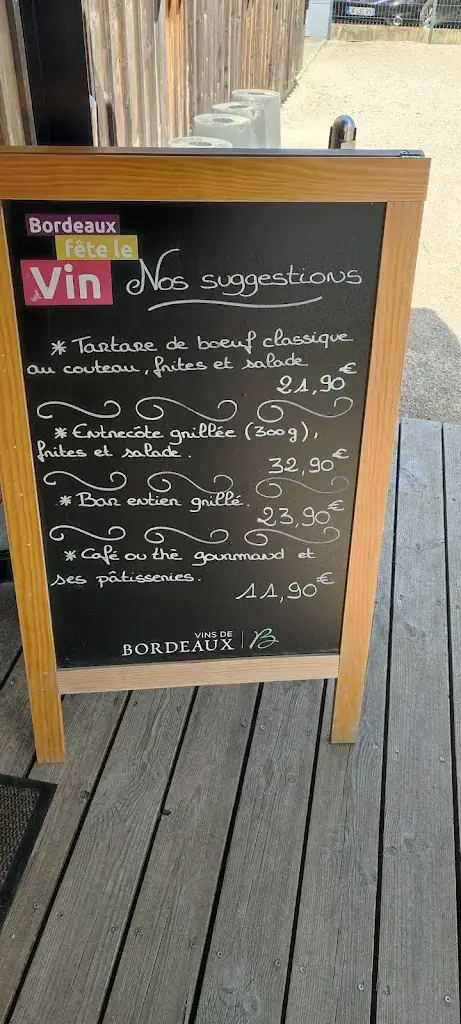 Bordeaux
fête le
Vin
Nos suggestions
* Tartare de boeuf classique
au couteau, frites et salade
21,90€
* Entrecôte grillée (300g),
frites et salade.
32,90€
* Bar entier grillé.
23,90€
* Café ou thé gourmand et
ses pâtisseries.
11,90€
VINS DE
BORDEAUX | B